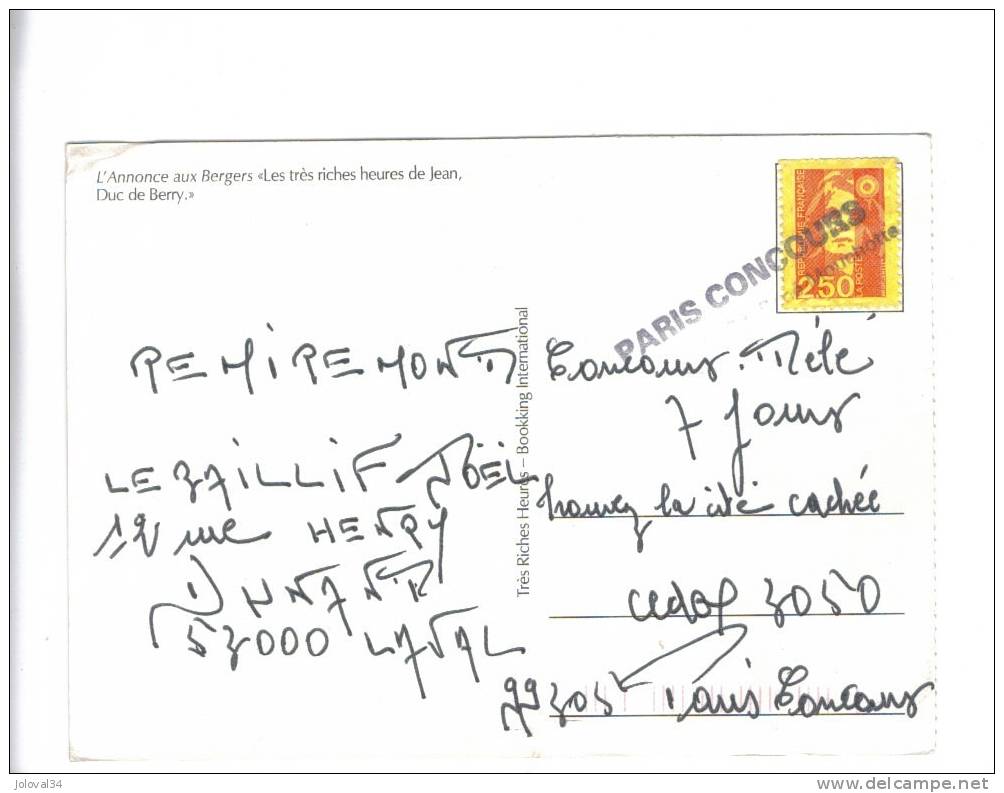 L'Annonce aux Bergers «Les très riches heures de Jean,
Duc de Berry.»
REPUBLIQUE FRANÇAISE
LA POSTE
2,50
PARIS CONCOURS
REMIREMONT
LE BAILLIF JOËL
12 rue HENRY
DUNANT
53000 LAVAL
Très Riches Heures – Bookking International
Concours Télé
7 Jours
trouvez la cité cachée
cedex 3050
99305 Paris Concours
joloval34
www.delcampe.net